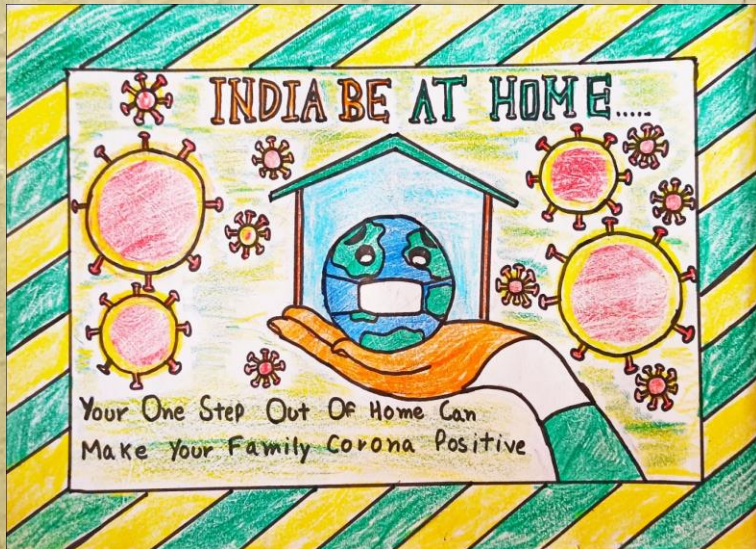 INDIA BE AT HOME.....
Your One Step Out Of Home Can
Make Your Family Corona Positive